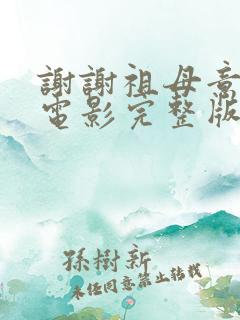 謝謝祖母意
電影完整版
孫樹新
未任同意禁止转载